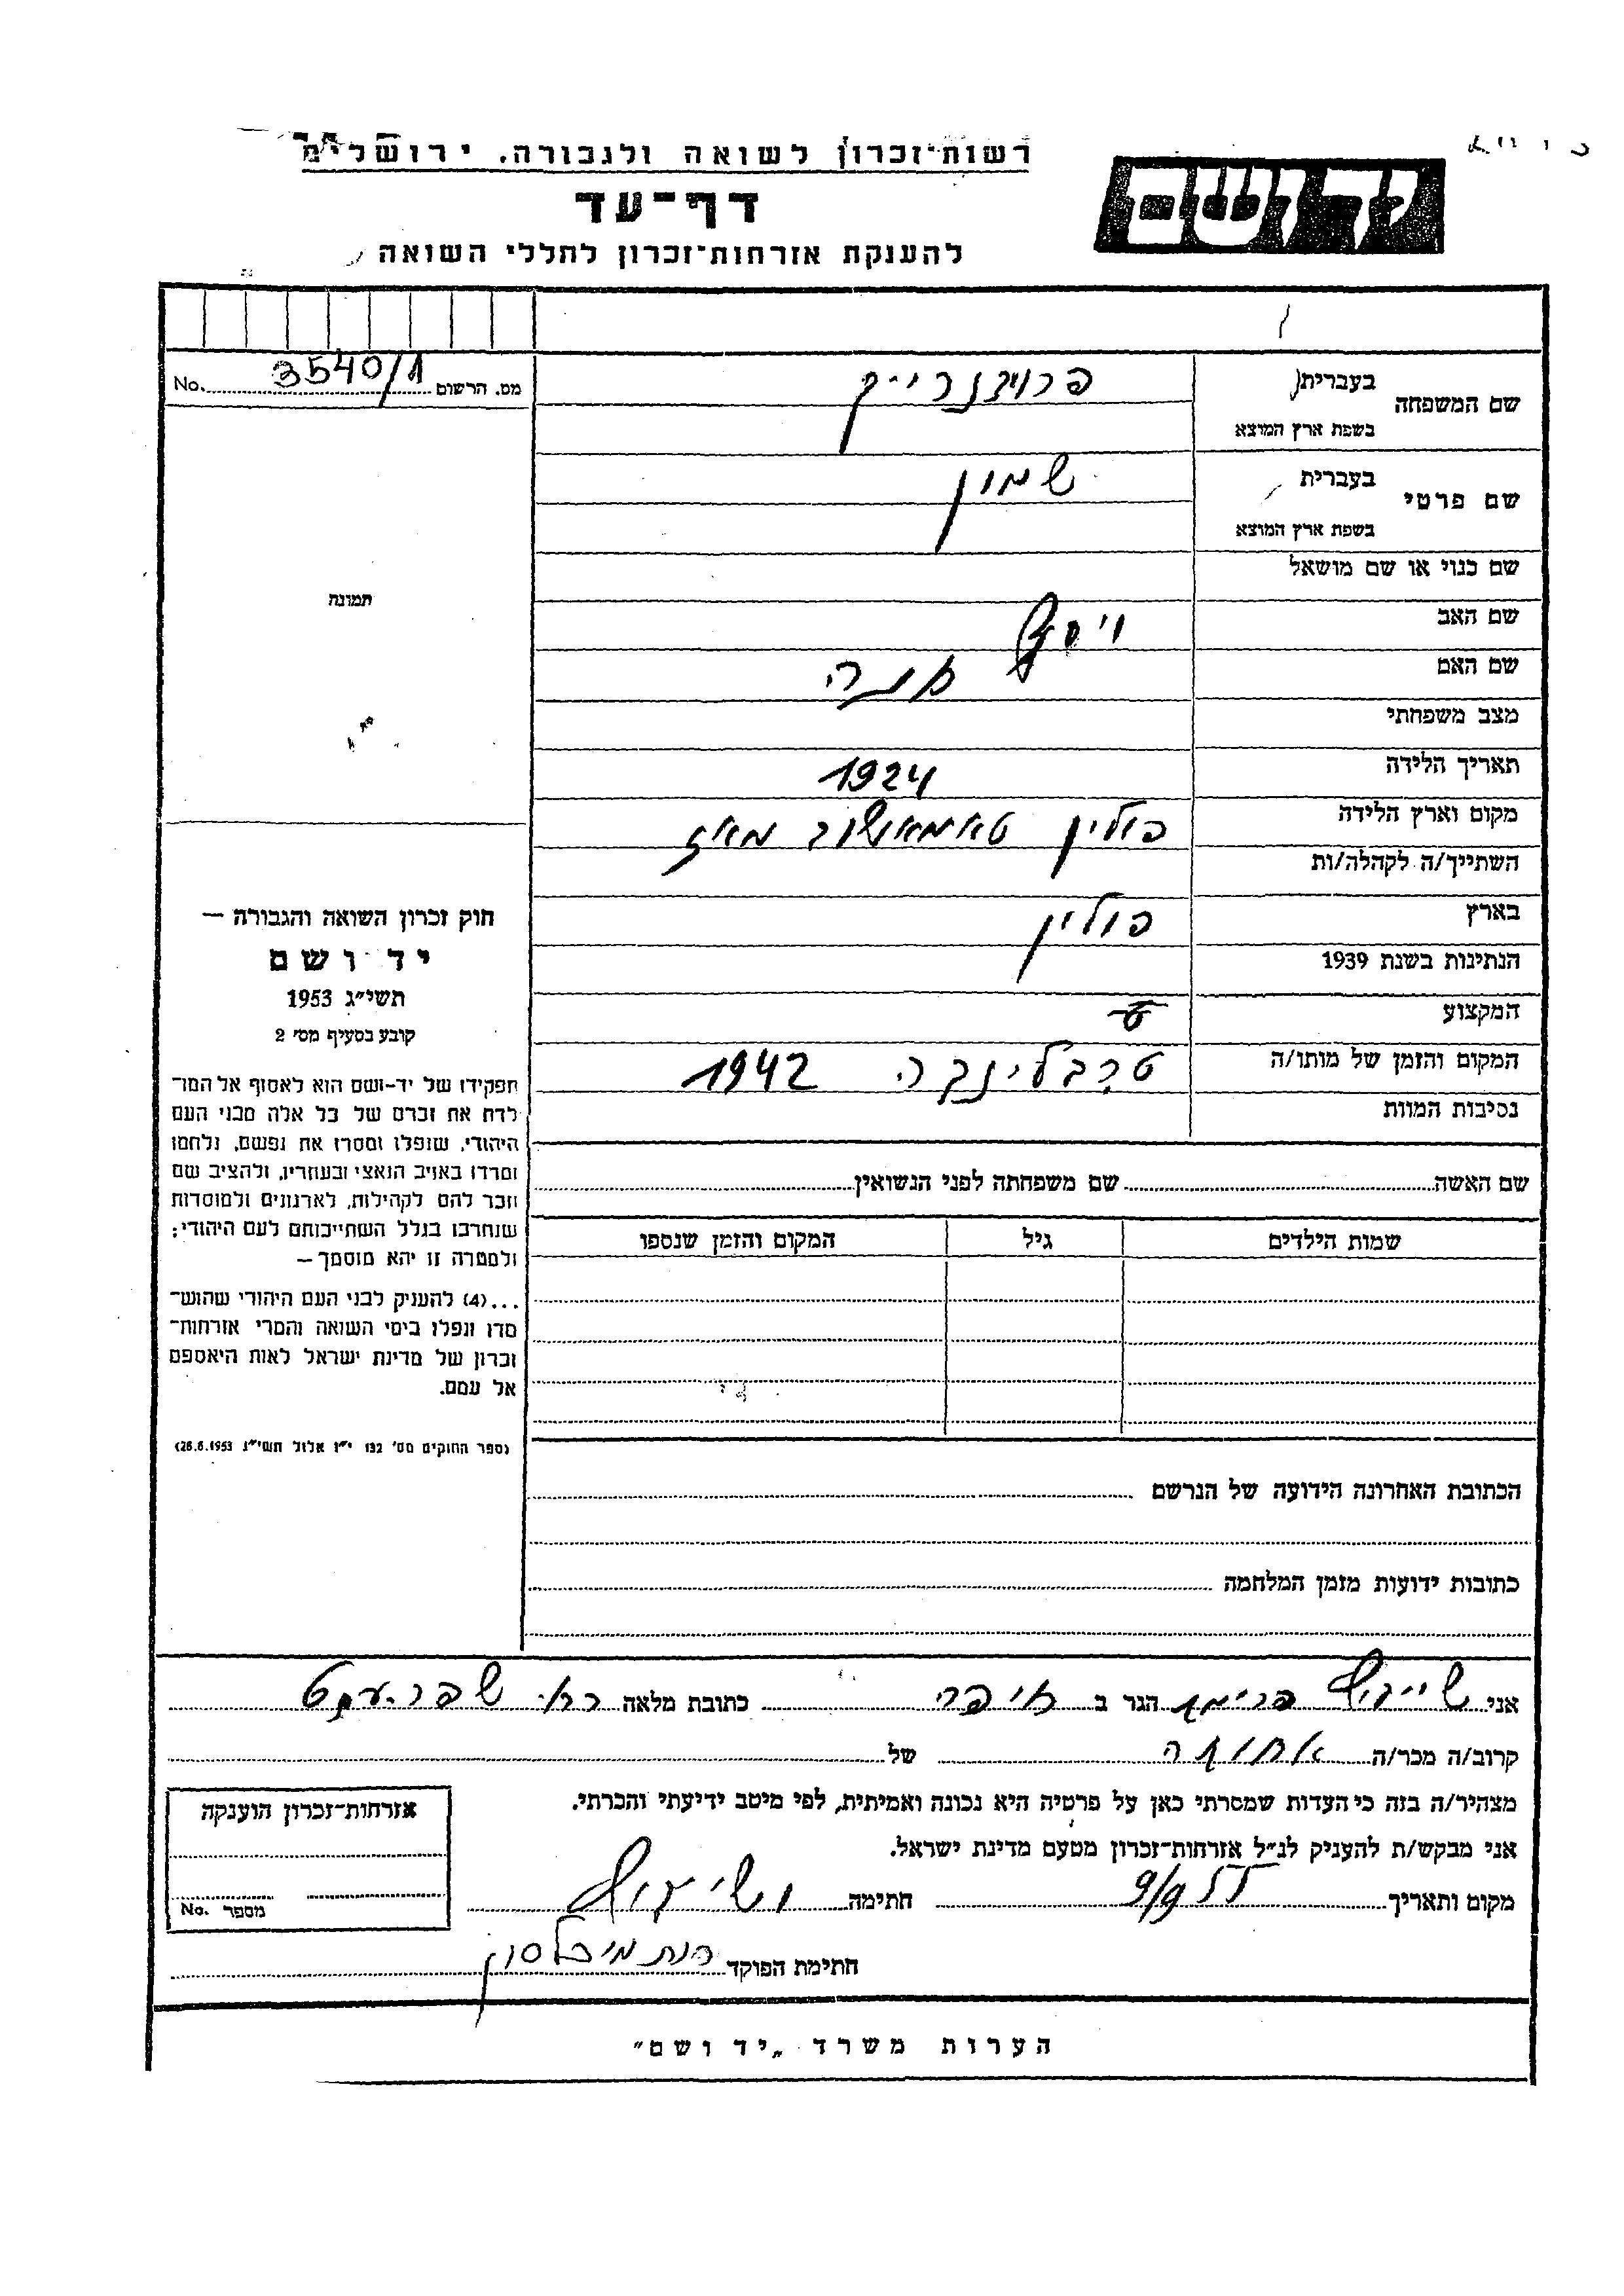 רשות־זכרון לשואה ולגבורה. ירושלים
יד ושם
דף־עד
להענקת אזרחות־זכרון לחללי השואה
שם המשפחה
בעברית
בשפת ארץ המוצא
שם פרטי
בעברית שמון
בשפת ארץ המוצא
שם כנוי או שם מושאל
שם האב יוסף
שם האם
מצב משפחתי
תאריך הלידה 1924
מקום וארץ הלידה פולין טאמאשוב מאז
השתייך/ה לקהלה/ות
בארץ פולין
הנתינות בשנת 1939
המקצוע
המקום והזמן של מותו/ה טרבלינקה 1942
נסיבות המוות
מס. הרשום 3540/1 No.
תמונה
חוק זכרון השואה והגבורה —
יד ושם
תשי״ג 1953
קובע בסעיף מס׳ 2
תפקידו של יד-ושם הוא לאסוף אל המו־
לדת את זכרם של כל אלה מבני העם
היהודי, שנפלו ומסרו את נפשם, נלחמו
ומרדו באויב הנאצי ובעוזריו, ולהציב שם
וזכר להם לקהילות, לארגונים ולמוסדות
שנחרבו בגלל השתייכותם לעם היהודי;
ולמטרה זו יהא מוסמך —
...(4) להעניק לבני העם היהודי שהוש־
מדו ונפלו בימי השואה והמרי אזרחות־
זכרון של מדינת ישראל לאות היאספם
אל עמם.
(ספר החוקים מס׳ 132 י״ז אלול תשי״ג 28.8.1953)
שם האשה שם משפחתה לפני הנשואין
שמות הילדים גיל המקום והזמן שנספו
הכתובת האחרונה הידועה של הנרשם
כתובות ידועות מזמן המלחמה
אני הגר ב חיפה כתובת מלאה
קרוב/ה מכר/ה של
מצהיר/ה בזה כי העדות שמסרתי כאן על פרטיה היא נכונה ואמיתית, לפי מיטב ידיעתי והכרתי.
אני מבקש/ת להעניק לנ״ל אזרחות־זכרון מטעם מדינת ישראל.
מקום ותאריך 9/9 55 חתימה
חתימת הפוקד
אזרחות־זכרון הוענקה
מספר No.
הערות משרד „יד ושם״